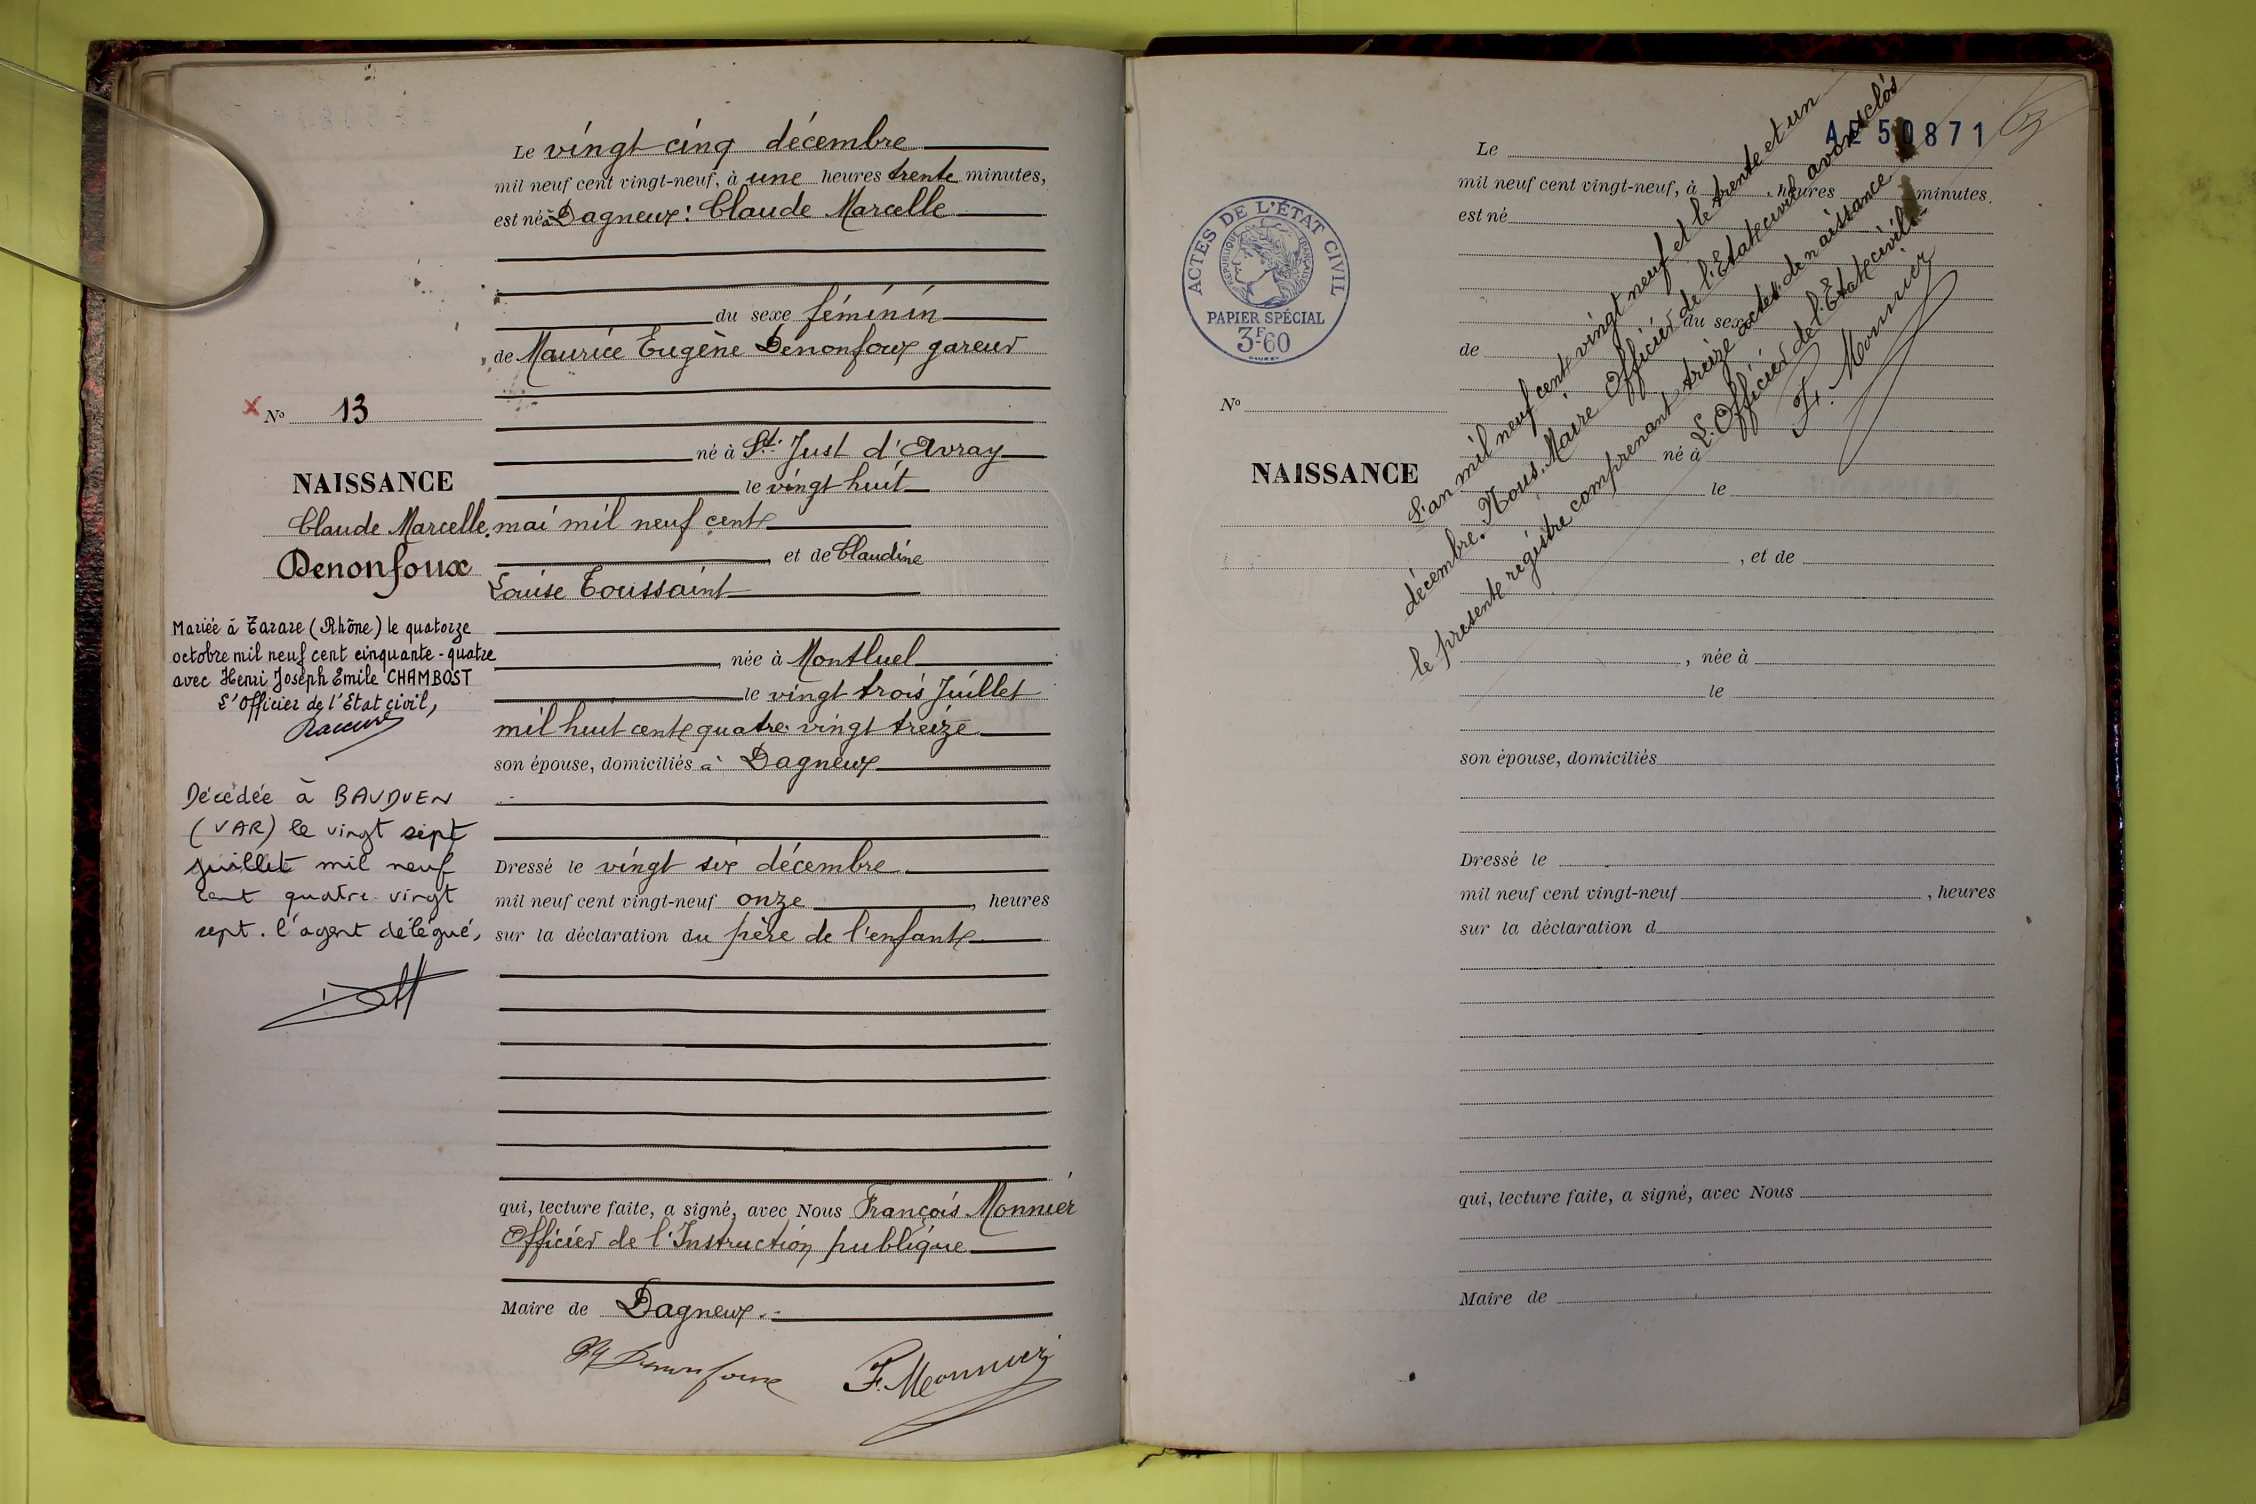 Le vingt cinq décembre
mil neuf cent vingt-neuf, à une heures trente minutes,
est née à Dagneux : Claude Marcelle
du sexe féminin
de Maurice Eugène Denonfoux gareur
né à St. Just d'Avray
le vingt huit
mai mil neuf cent
et de Claudine
Louise Toussaint
née à Montluel
le vingt trois Juillet
mil huit cent quatre vingt treize
son épouse, domiciliés à Dagneux
Dressé le vingt six décembre
mil neuf cent vingt-neuf onze, heures
sur la déclaration du père de l'enfant
qui, lecture faite, a signé, avec Nous François Monnier
Officier de l'Instruction publique
Maire de Dagneux.
Denonfoux
F. Monnier
X No 13
NAISSANCE
Claude Marcelle
Denonfoux
Mariée à Tarare (Rhône) le quatorze
octobre mil neuf cent cinquante-quatre
avec Henri Joseph Emile CHAMBOST
L'Officier de l'Etat civil,
Décédée à BAUDUEN
(VAR) le vingt sept
juillet mil neuf
cent quatre vingt
sept. l'agent délégué,
AE 50871
ACTES DE L'ÉTAT CIVIL
RÉPUBLIQUE FRANÇAISE
PAPIER SPÉCIAL
3F60
Le
mil neuf cent vingt-neuf, à , heures minutes.
est né
du sexe
de
No
né à
NAISSANCE
le
, et de
, née à
le
son épouse, domiciliés
Dressé le
mil neuf cent vingt-neuf , heures
sur la déclaration d
qui, lecture faite, a signé, avec Nous
Maire de
L'an mil neuf cent vingt neuf et le trente et un
décembre. Nous. Maire Officier de l'Etat civil avons clos
le present registre comprenant treize actes de naissance
L'Officier de l'Etat civil
F. Monnier